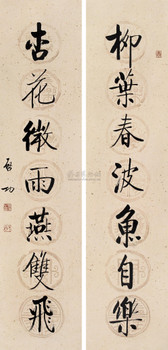 柳葉春波魚自樂
杏花微雨燕雙飛
啟功